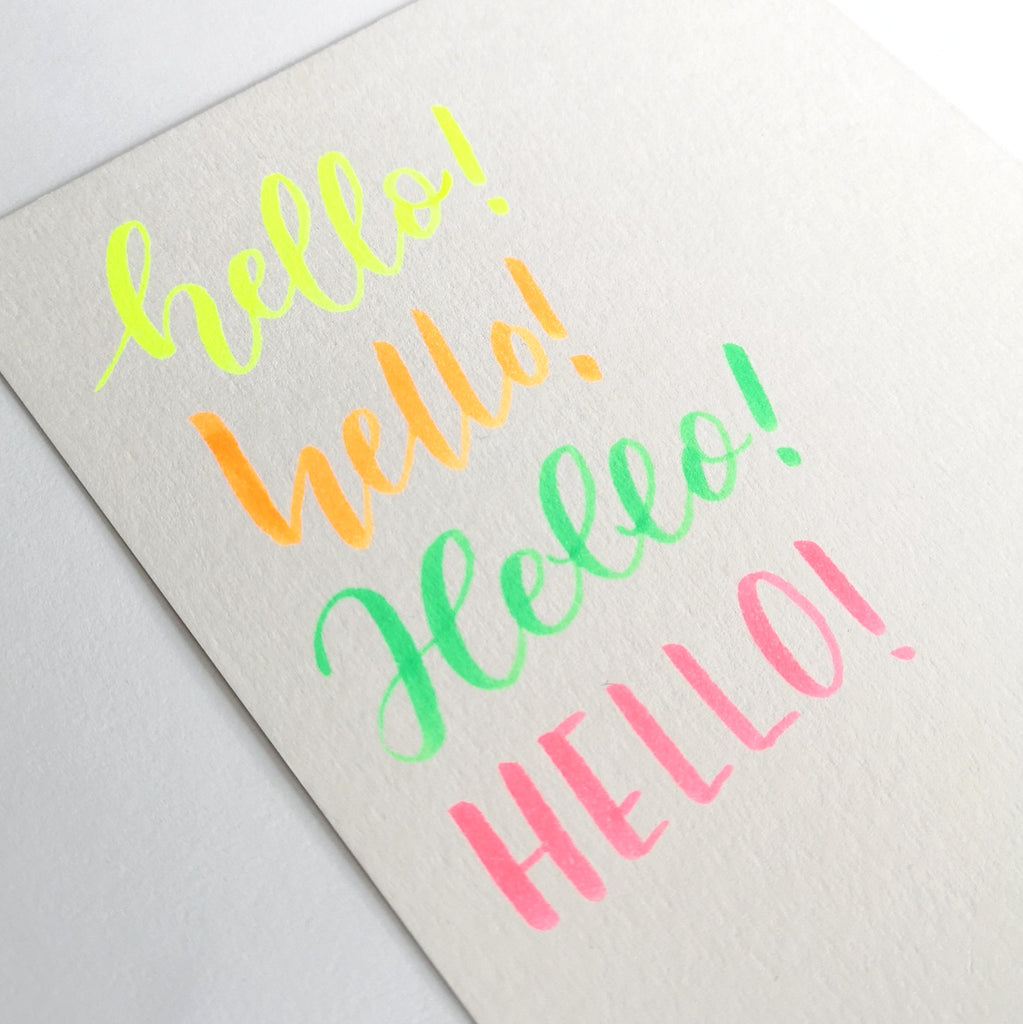 hello!
hello!
Hello!
HELLO!